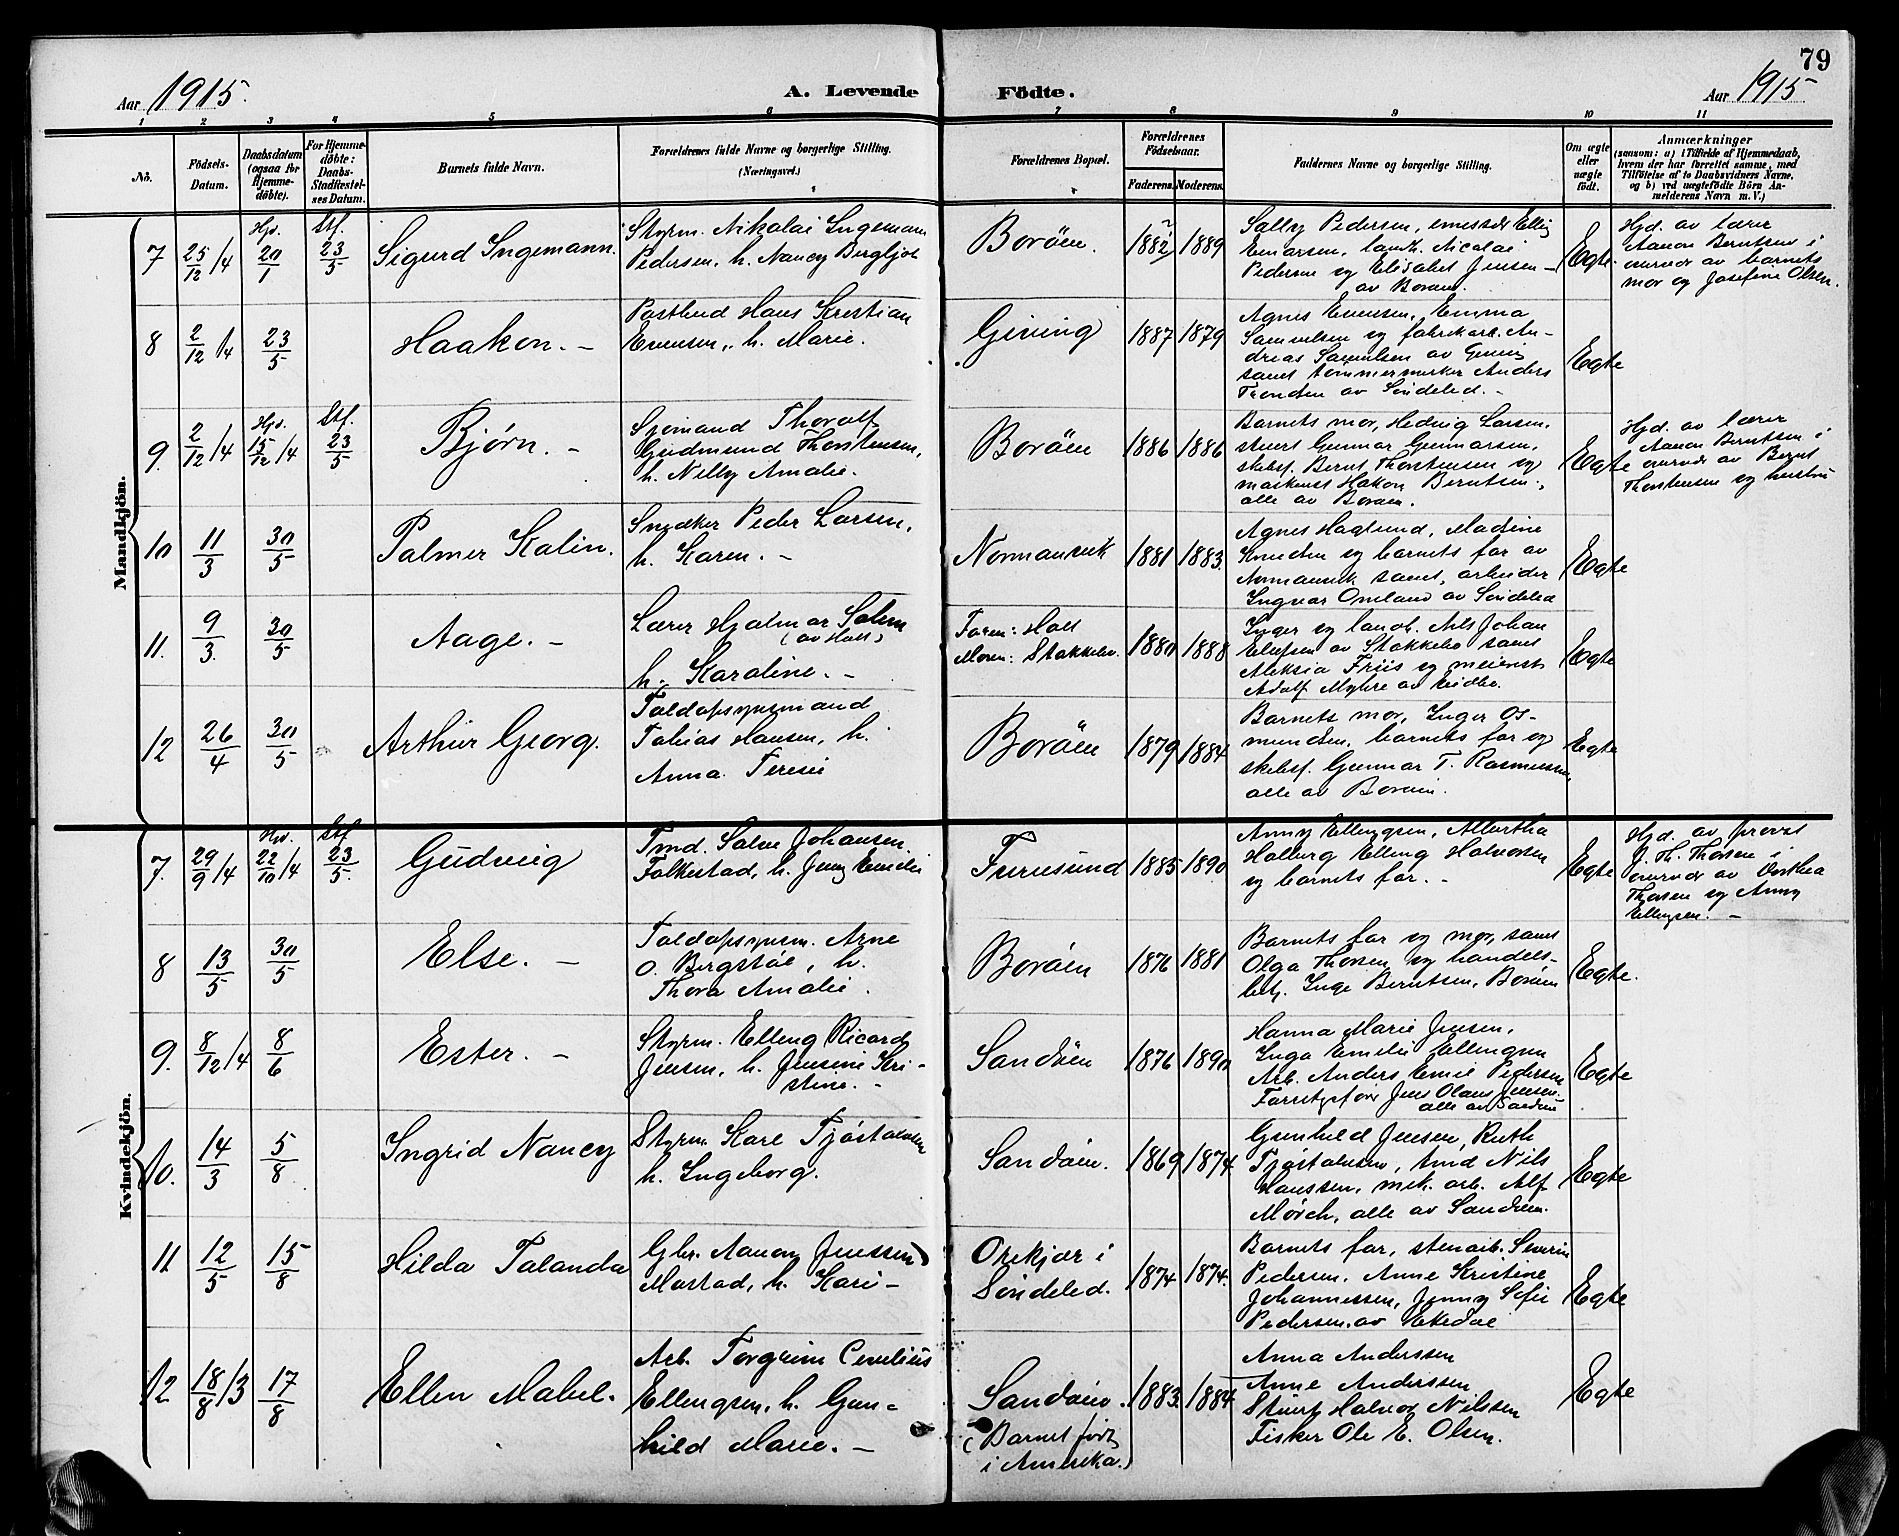 79
Aar 1915.
A. Levende Födte.
Aar 1915
1 2 3 4 5 6 7 8 9 10 11
No.
Födsels-
Datum.
Daabsdatum
(ogsaa for
Hjemme-
döbte).
For Hjemme-
döbte:
Daabs-
Stadfæstel-
ses Datum.
Barnets fulde Navn.
Forældrenes fulde Navne og borgerlige Stilling.
(Næringsvei.)
Forældrenes Bopæl.
Forældrenes
Födselsaar.
Faderens. Moderens.
Faddernes Navne og borgerlige Stilling.
Om ægte
eller
uægte
födt.
Anmærkninger
(saasom: a) i Tilfælde af Hjemmedaab,
hvem der har forrettet samme, med
Tilföielse af to Daabsvidners Navne,
og b) ved uægtefödte Börn An-
melderens Navn m. V.)
Mandkjön.
7 25/12 /4 Hjd. 20/1 Stf. 23/5 Sigurd Ingemann.
Styrm. Nikolai Ingemann
Pedersen, h. Nancy Bergljot
Borøen. 1882 1889
Salby Pedersen, Elling
Einarsen, Nicolai
Pedersen og Elisabet Jensen -
av Borøen.
Egte.
Hjd. av lærer
Aanon Berntsen i
overvær av barnets
mor og Josefine Olsen.
8 2/12 /4 23/5 Haakon. -
Postbud Hans Kristian
Evensen, h. Marie.
Gjeving 1887 1879
Agnes Evensen, Emma
Samuelsen og fabrikarb. An-
dreas Samuelsen av
samt tømmermerker Anders
Trondsen av Søndeled. -
Egte
9. 2/12 /4 Hjd. 15/12 /4 Stf. 23/5 Bjørn. -
Sjømand Thoralf
Gudmund Thorstensen,
h. Nelly Amalie.
Borøen 1886 1886
Barnets mor, Hedvig Larsen,
stuert Gunnar Gunnarsen,
skibsf. Bernt Thorstensen og
maskinist Hakon Berntsen,
alle av Borøen.
Egte
Hjd. av lærer
Aanon Berntsen i
overvær av Bernt
Thorstensen og hustru
10 11/3 30/5 Palmer Kalin.
Snedker Peder Larsen,
h. Karen. -
Normansvik 1881 1883.
Agnes Haglund, Madsine
Knudsen og barnets far av
Normansvik samt, arbeider
Ingvar Omland av Søndeled
Egte
11. 9/3. 30/5 Aage. -
Lærer Hjalmar Salem
(av Holt)
h. Karoline. -
Faren: Holt
Moren: Stokkebo. 1880 1888
Inger og landb. Nils Johan
Olufsen av Stokkebo samt
Aleksia Friis og meierist
Adolf Myhre av
Egte
12 26/4 30/5 Arthur Georg.
Toldopsynsmand
Tobias Hansen, h.
Anna Teresie
Borøen 1879 1884
Barnets mor, Inger Os-
mundsen, barnets far og
skibsf. Gunnar T. Rasmussen
alle av Borøen.
Egte
Kvindekjön.
7. 29/9 /4 Hjd. 22/10 /4 Stf 23/5. Gudveig
Tmd. Salve Johansen
Falkestad, h. Jenny Emilie
Furuesund 1885 1890
Anny Ellingsen, Albertha
Holberg Elling Halvorsen
og barnets far. -
Egte
Hjd. av provst
J. Th. Thorsen i
overvær av Dorthea
Thorsen og Anny
Ellingsen. -
8 13/5 30/5 Else. -
Toldopsynsm. Arne
O. Bergstøl, h.
Thora Amalie.
Borøen 1876 1881
Barnets far og mor, samt
Olga Thorsen og handels-
betj. Inge Berntsen, Borøen
Egte.
9. 8/12 /4 8/6 Ester. -
Styrm. Elling Ricard
Jensen, h. Jensine Kri-
stine. -
Sandøen 1876 1890
Hanna Marie Jensen,
Inga Emelie Ellingsen
Arb. Anders Emil Pedersen
Jens Olaus Jensen.
alle av Sandøen
Egte
10. 14/3 5/8 Ingrid Nancy
Styrm. Kare Tjøstolvsen
h. Ingeborg.
Sandøen. 1869 1874.
Gunhild Jensen, Ruth
Tjøstolvsen, tmd Nils
Hanssen, mek. arb. Alf
Mørch, alle av Sandøen.
Egte
11 12/5 15/8 Hilda Talanda
Gbr. Aanon Jenssen
Mostad, h. Kari -
Orekjær i
Søndeled. 1874 1874.
Barnets far, stenarb. Severin
Pedersen. Anne Kristine
Johannessen, Jenny Sofie
Pedersen. av Ekedal
Egte
12 18/8 /3 17/8 Ellen Mabel.
Arb. Torgrim Cevelius
Ellingsen, h. Gun-
hild Marie. -
Sandøen.
(Barnet født
i Amerika.) 1883. 1884
Anna Anderssen
Anne Anderssen
Stuert Halvor Nilssen
Fisker Ole E. Olsen.
Egte